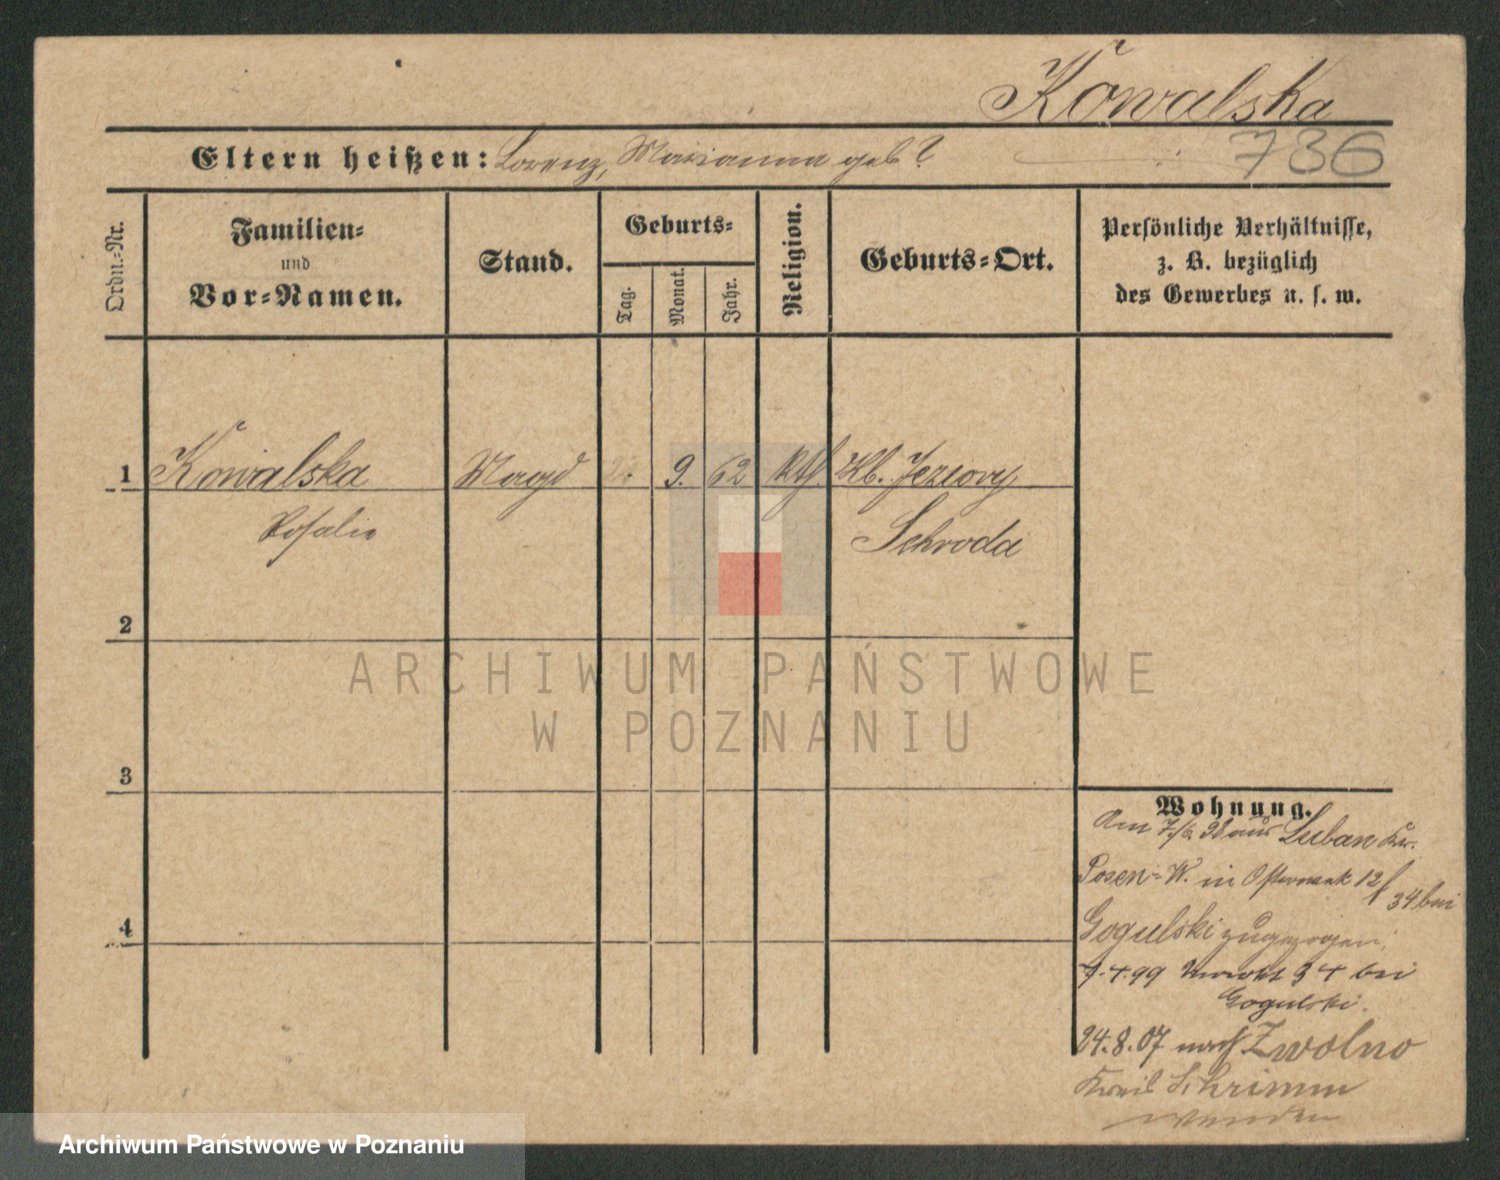 Kowalska
Eltern heißen: Lorenz, Marianna geb?
736
Ordn.-Nr.
Familien-
und
Vor-Namen.
Stand.
Geburts-
Tag.
Monat.
Jahr.
Religion.
Geburts-Ort.
Persönliche Verhältnisse,
z. B. bezüglich
des Gewerbes u. s. w.
1 Kowalska Magd 9. 62 kth. Kl. Jeziory
Rosalie Schroda
2
3
4
Wohnung.
Am 7/6. 98 aus Luban Kr.
Posen-W. in 12
34 bei
Gogulski zugezogen
4.99 34 bei
Gogulski.
24.8.07 nach Zwolno
Kreis Schrimm
wenden
ARCHIWUM PAŃSTWOWE
W POZNANIU
Archiwum Państwowe w Poznaniu